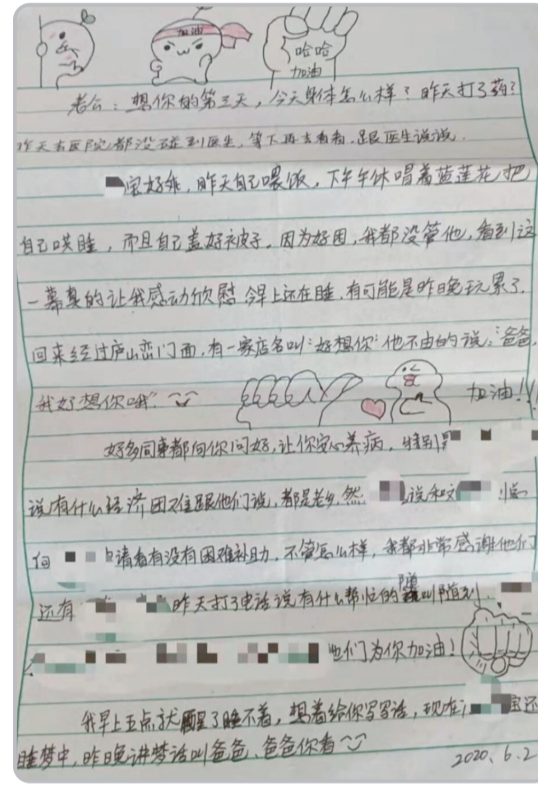 加油
哈哈
加油
老公：想你的第三天，今天身体怎么样？昨天打了药？
昨天去医院都没碰到医生，等下再去看看，跟医生说说。
宝好乖，昨天自己喂饭，下午午休唱着蓝莲花把
自己哄睡，而且自己盖好被子。因为好困，我都没管他，看到这
一幕真的让我感动欣慰 今早上还在睡，有可能是昨晚玩累了。
回来经过庐山恋门面，有一家店名叫：好想你"他不由的说："爸爸，
我好想你哦"
加油!!!
好多同事都向你问好，让你安心养病，特别是
说有什么经济困难跟他们说，都是老乡，然 说和
请看有没有困难补助，不管怎么样，我都非常感谢他们
还有 昨天打了电话说有什么帮忙的随叫随到。
他们为你加油！
我早上五点就醒了睡不着，想着给你写写话，现在 宝还
睡梦中，昨晚讲梦话叫爸爸、爸爸你看
2020.6.2